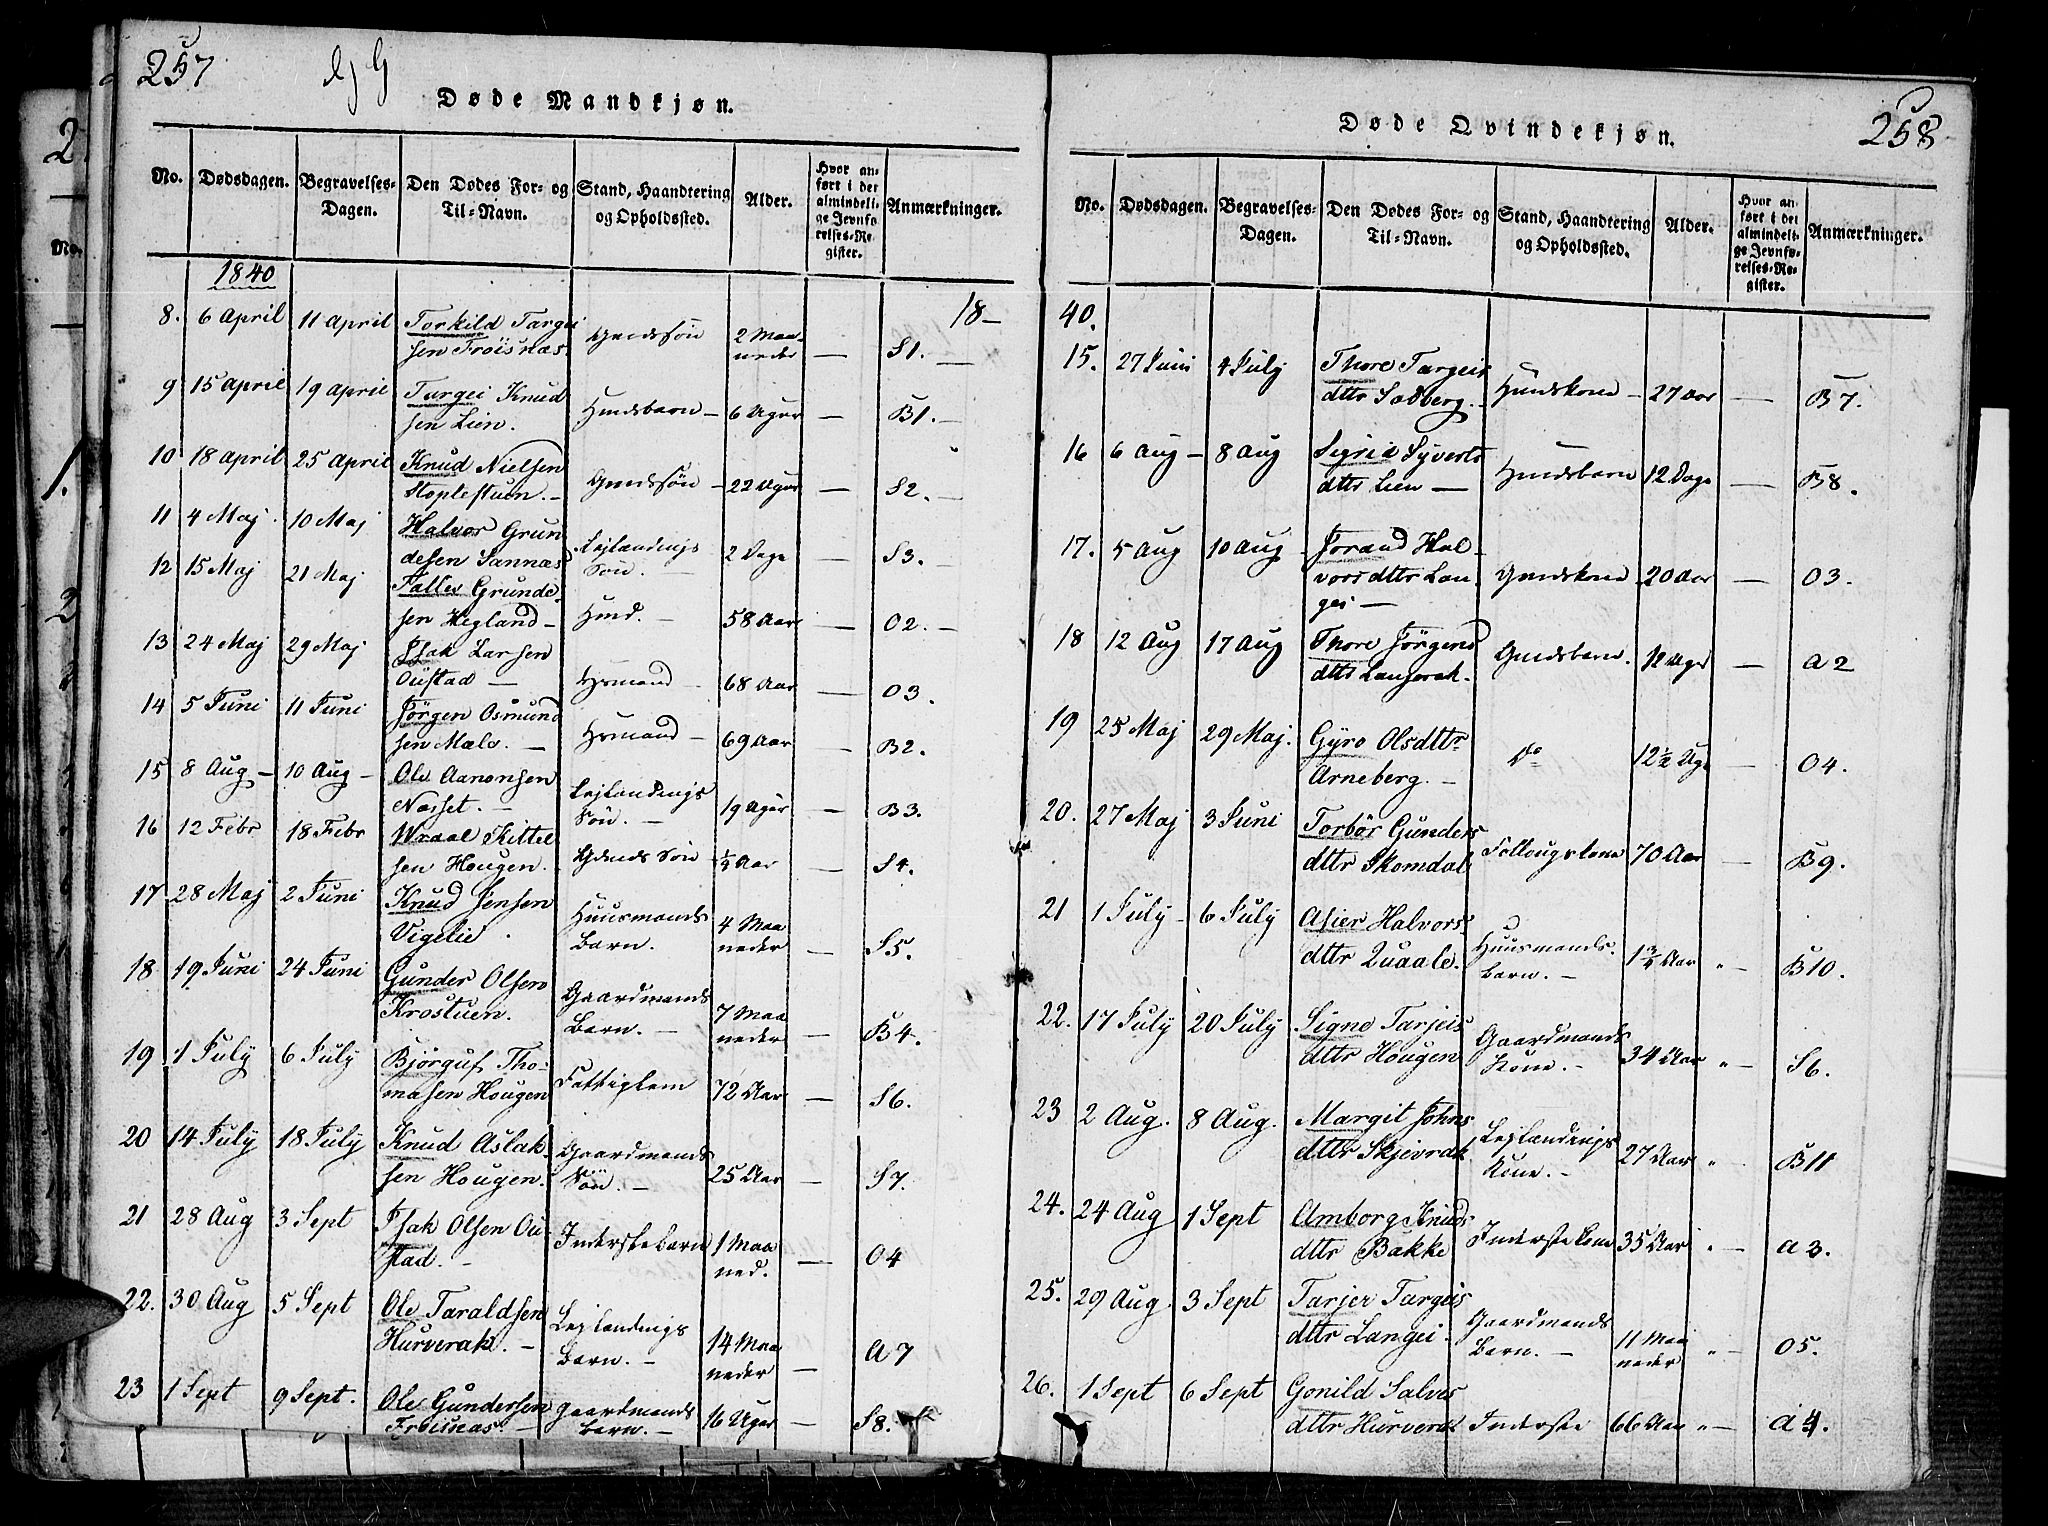 257
Døde Mandkjøn.
No. Dødsdagen. Begravelses-Dagen. Den Dødes For- og Til-Navn. Stand, Haandtering og Opholdssted. Alder. Hvor anført i det almindelige Jevnførelses-Register. Anmærkninger.
1840 18-
8. 6 April 11 April Torkild Targei
sen Froisnæs. Gmdssön 2 Maa-
neder — S1. —
9 15 April 19 April Targei Knud
sen Lien. Hmdsbarn — 6 Uger — B1. —
10 18 April 25 April Knud Nielsen
Stoplestuen. — Gmdssön — 22 Uger — S2. —
11 4 Maj. 10 Maj Halvor Grun
desen Sannæs Lejlændings
Sön. 2 Dage — S3. —
12 15 Maj 21 Maj Tallev Grunde-
sen Hegland — Hmd. — 58 Aar — O2. —
13 24 Maj 29 Maj Isak Larsen
Oustad — Hsmand — 68 Aar — O3
14 5 Juni 11 Juni Jörgen Osmund
sen Mæle. — Hsmand — 69 Aar — B2.
15 8 Aug — 10 Aug — Ole Aanonsen
Næsset. — Lejlændings
Sön. — 19 Uger — B3.
16 12 Febr 18 Febr Wraal Kittel
sen Hougen. Gdmds Sön ½ Aar — S4.
17 28 Maj 2 Juni Knud Jensen
Vigelie. Huusmands
Barn. 4 Maa
neder — S5.
18 19 Juni 24 Juni Gunder Olsen
Krostuen. Gaardmands
Barn. — 7 Maa
neder — B4.
19 1 July 6 July Björguf Tho-
masen Hougen Fattiglem 72 Aar — S6.
20 14 July 18 July Knud Aslak-
sen Hougen. Gaardmands
Sön. — 25 Aar — S7.
21 28 Aug 3 Sept Isak Olsen Ou-
stad. — Inderstebarn 1 Maa
ned. — O4
22. 30 Aug 5 Sept Ole Taraldsen
Hurverak. — Lejlændings
Barn. — 14 Maa
neder — A7
23 1 Sept 9 Sept. Ole Gundersen
Froisnæs. — Gaardmands
Barn. — 16 Uger — S8.
258
Døde Qvindekjøn.
No. Dødsdagen. Begravelses-Dagen. Den Dødes For- og Til-Navn. Stand, Haandtering og Opholdssted. Alder. Hvor anført i det almindelige Jevnførelses-Register. Anmærkninger.
40.
15. 27 Juni 4 July Thore Targeis
dttr Solberg. — Hundskone — 27 Aar — B7.
16 6 Aug — 8 Aug Sigrid Syverts
dttr Lien — Hmdsbarn 12 Dage — B8.
17. 5 Aug 10 Aug — Jorand Hal-
vorsdttr Lan-
gei — Gmdskone — 20 Aar — O3.
18 12 Aug 17 Aug Thore Jörgens
dttr Lauserak. Gmdsbarn. 12 Uger — A2
19 25 Maj 29 Maj. Gyro Olsdttr
Arneberg. — Do 12½ Uge — O4.
20. 27 Maj 3 Juni Torbör Gunders
dttr Skomdal 70 Aar — B9.
21 1 July — 6 July Asier Halvors-
dttr Quaale. Huusmands
barn. — 1¾ Aar „ — B10.
22. 17 July 20 July Signe Tarjeis
dttr Hougen Gaardmands
Kone. — 34 Aar „ — S6.
23 2 Aug. 8 Aug. Margit Johns
dttr Skjevrak Lejlændings
Kone. — 27 Aar „ — B11
24. 24 Aug 1 Sept Amborg Knuds
dttr Bakke Inderstekone 35 Aar „ — A3.
25. 29 Aug. 3 Sept Tarjer Targeis
dttr Langei. Gaardmands
Barn. — 11 Maa
neder „ — O5.
26. 1 Sept 6 Sept Gonild Salves
dttr Hurverak Inderste 66 Aar „ — A4.